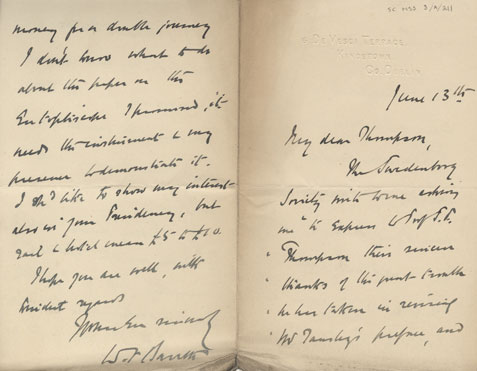 6 De Vesci Terrace,
Kingstown,
Co. Dublin
June 13th
My dear Thompson,
The Swedenborg
Society write to me asking
me "to express to Prof. S.P.
" Thompson their sincere
" thanks for the great trouble
" he has taken in revising
" Mr Tansley's preface, and
money for a double journey
I don't know what to do
about the paper on the
Entoptiscope I promised, it
needs the instrument & my
presence to demonstrate it.
I shd like to show my interest
also in your Presidency, but
rail & hotel mean £5 to £10.
I hope you are well, with
kindest regards
Yours very sincerely
W F Barrett